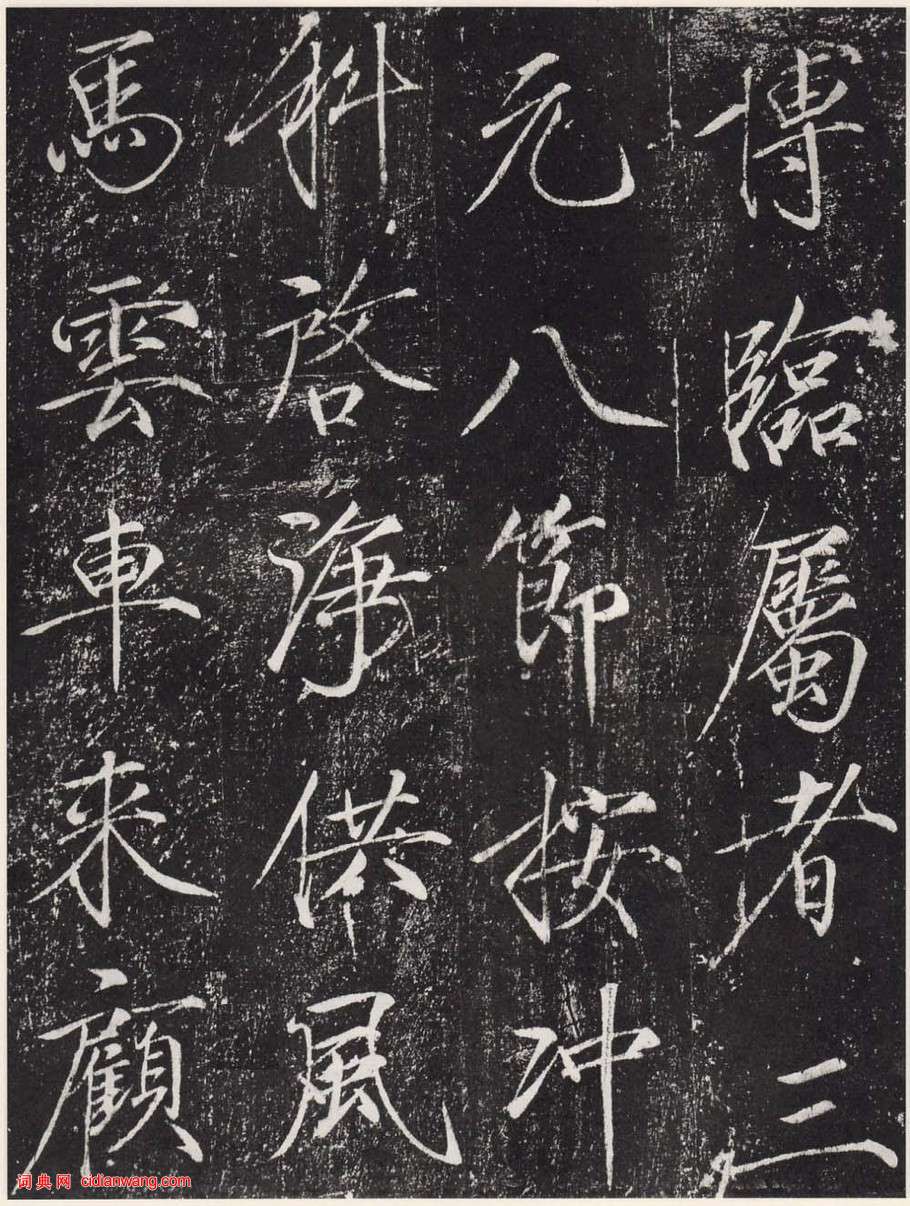 博臨屬者三
元八節按沖
科啓淨供風
馬雲車来顧
词典网 cidianwang.com